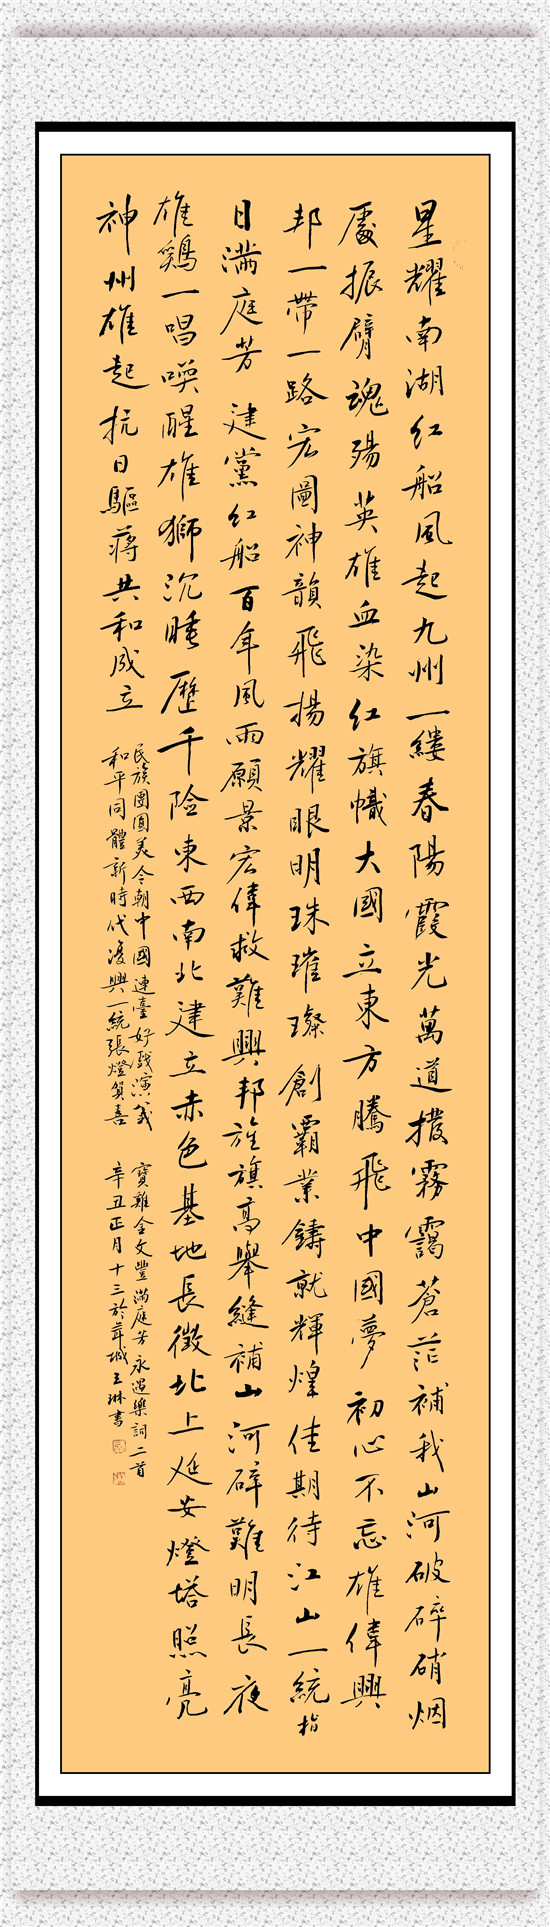 星耀南湖紅船風起九州一縷春陽霞光萬道撥霧靄蒼茫補我山河破碎硝烟
處振臂魂殤英雄血染紅旗幟大國立東方騰飛中國夢 初心不忘雄偉興
邦一帶一路宏圖神韻飛揚耀眼明珠璀璨創霸業鑄就輝煌佳期待江山一統指
日滿庭芳 建黨紅船百年風雨願景宏偉救難興邦旌旗高舉縫補山河碎難明長夜
雄鷄一唱喚醒雄獅沉睡歷千險東西南北建立赤色基地長徵北上延安燈塔照亮
神州雄起抗日驅蔣共和成立
民族團圓美今朝中國連臺好戲演義 寶雞金文豐滿庭芳永遇樂詞二首
和平同體新時代復興一統張燈賀喜 辛丑正月十三於莽城王琳書